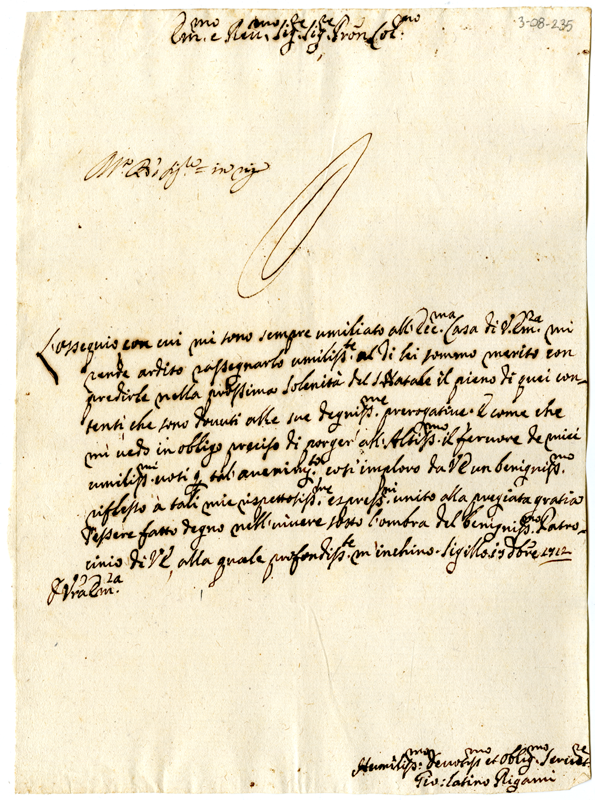 3-08-235
Em.mo e Rev.mo Sig.re Sig.re Pron Col.mo
L'ossequio con cui mi sono sempre umiliato all'Ecc.ma Casa di V. Em.za mi
rende ardito rassegnarlo umiliss.te al di lei sommo merito con
predirle nella prossima solenità del S. Natale il pieno di quei con-
tenti che sono dovuti alle sue degniss.me prerogative. E come che
mi vedo in obligo preciso di porger all'Altiss.mo il fervore de miei
umiliss.mi voti tal così imploro da V.E. un benigniss.mo
riflesso à tali mie rispettosiss.me espress.ni unito alla pregiata gratia
d'essere fatto degno nell'vivere sotto l'ombra del benigniss.mo Patro-
cinio di V.E. alla quale profondiss.te m'inchino. Sigillo 1712
D V.ra Em.za
Humiliss.mo Devotiss.mo et Oblig.mo Servit.re
Gio: Latino Rigami